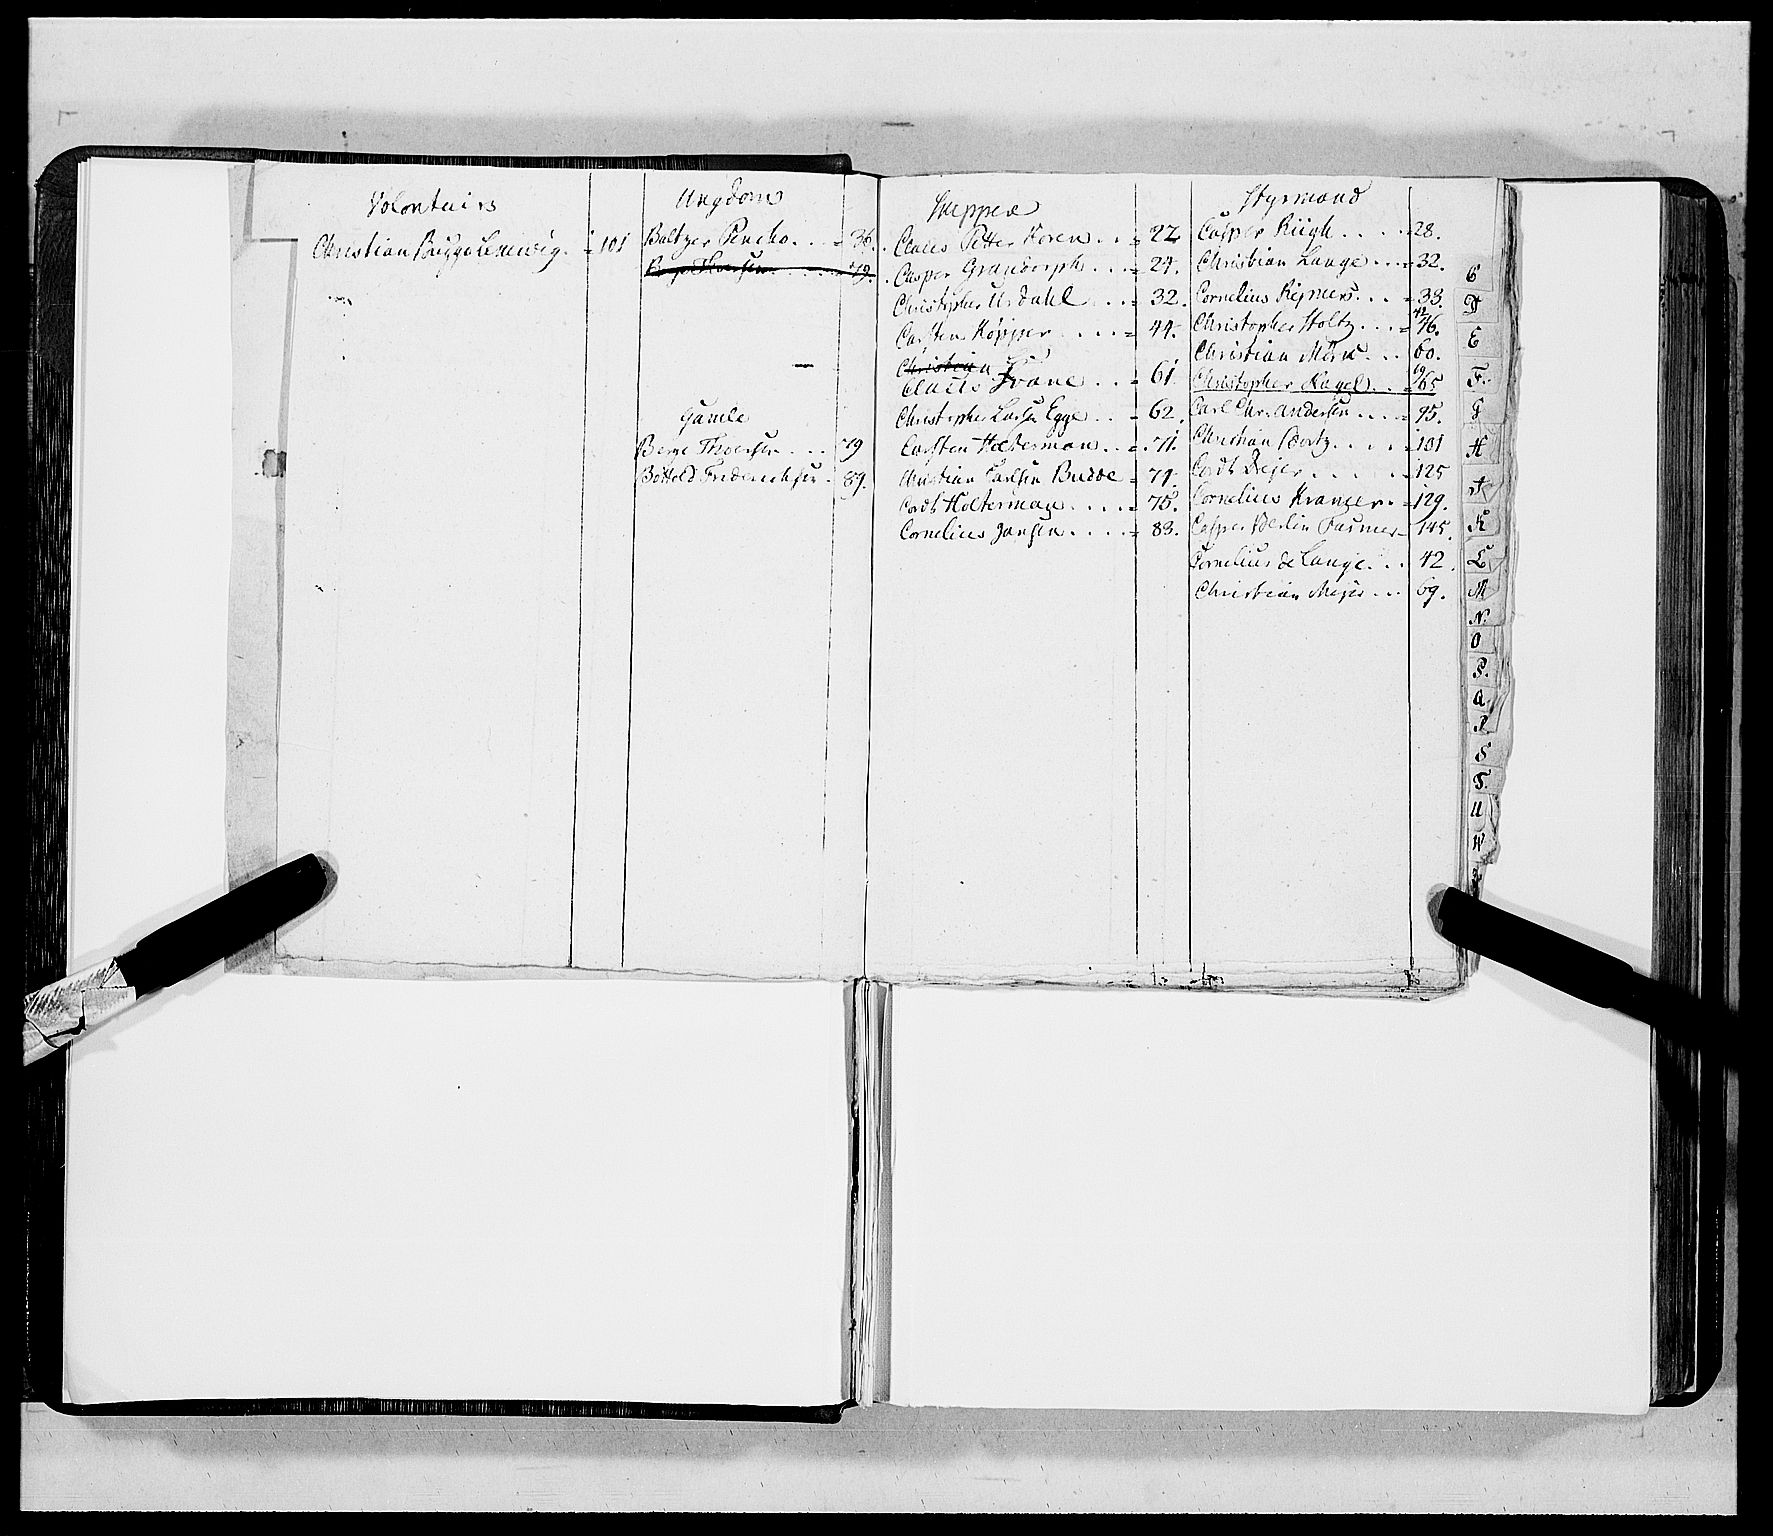 Volontairs
Christian Brügge Lemwig. = 101
Ungdom
Baltzer Pencko. . . = 36.
Berge Thoersen . . . . 79.
Gamle
Berge Thoersen . . . 79
Bottold Friderichsen . 89.
Skipper
Claus Petter Koren . . = 22
Casper Grandorph . . . = 24.
Christopher Urdahl . . . = 32.
Carsten Köpper . . . . = 44.
Christian
Claus Svane . . = 61.
Christopher Larsen Egge . . = 62.
Carsten Holterman . . = 71.
Christian Carlsen Budde = 74.
Cordt Holterman . . . . = 75.
Cornelius Jansen . . . . = 83.
Styrmænd
Casper Rügh . . . . = 28.
Christian Lange . . . = 32.
Cornelius Reimers . . . = 33.
42
Christopher Holtz . . . = 46.
Christian Mörk . . . 60.
Christopher Nagel . . = 65
Carl Chr. Andersen . . . . = 95.
Christian Cortz . . . . = 101
Cordt Drejer . . . . . = 125
Cornelius Kramer . . = 129.
Casper Verlin Farmer = 145.
Cornelius de Lange . . . 42.
Christian Mejer . . . 69.
C
D
E
F.
G
H
J
K
L
M
N.
O
P.
Q
R
S
T.
U
W